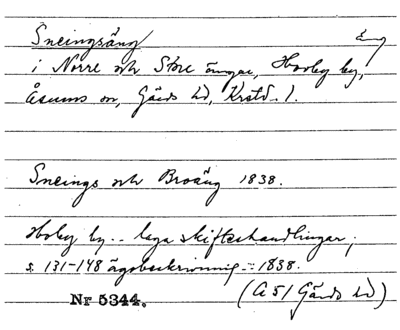 Sneingsäng äng
i Norre och Store ängar, Horby by,
Åsums sn, Gärds hd, Krstd. l.
Sneings och Broäng 1838.
Horby by.. laga skifteshandlingar,
s. 131-148 ägobeskrivning - 1838.
Nr 5344. (A 51 Gärds hd)